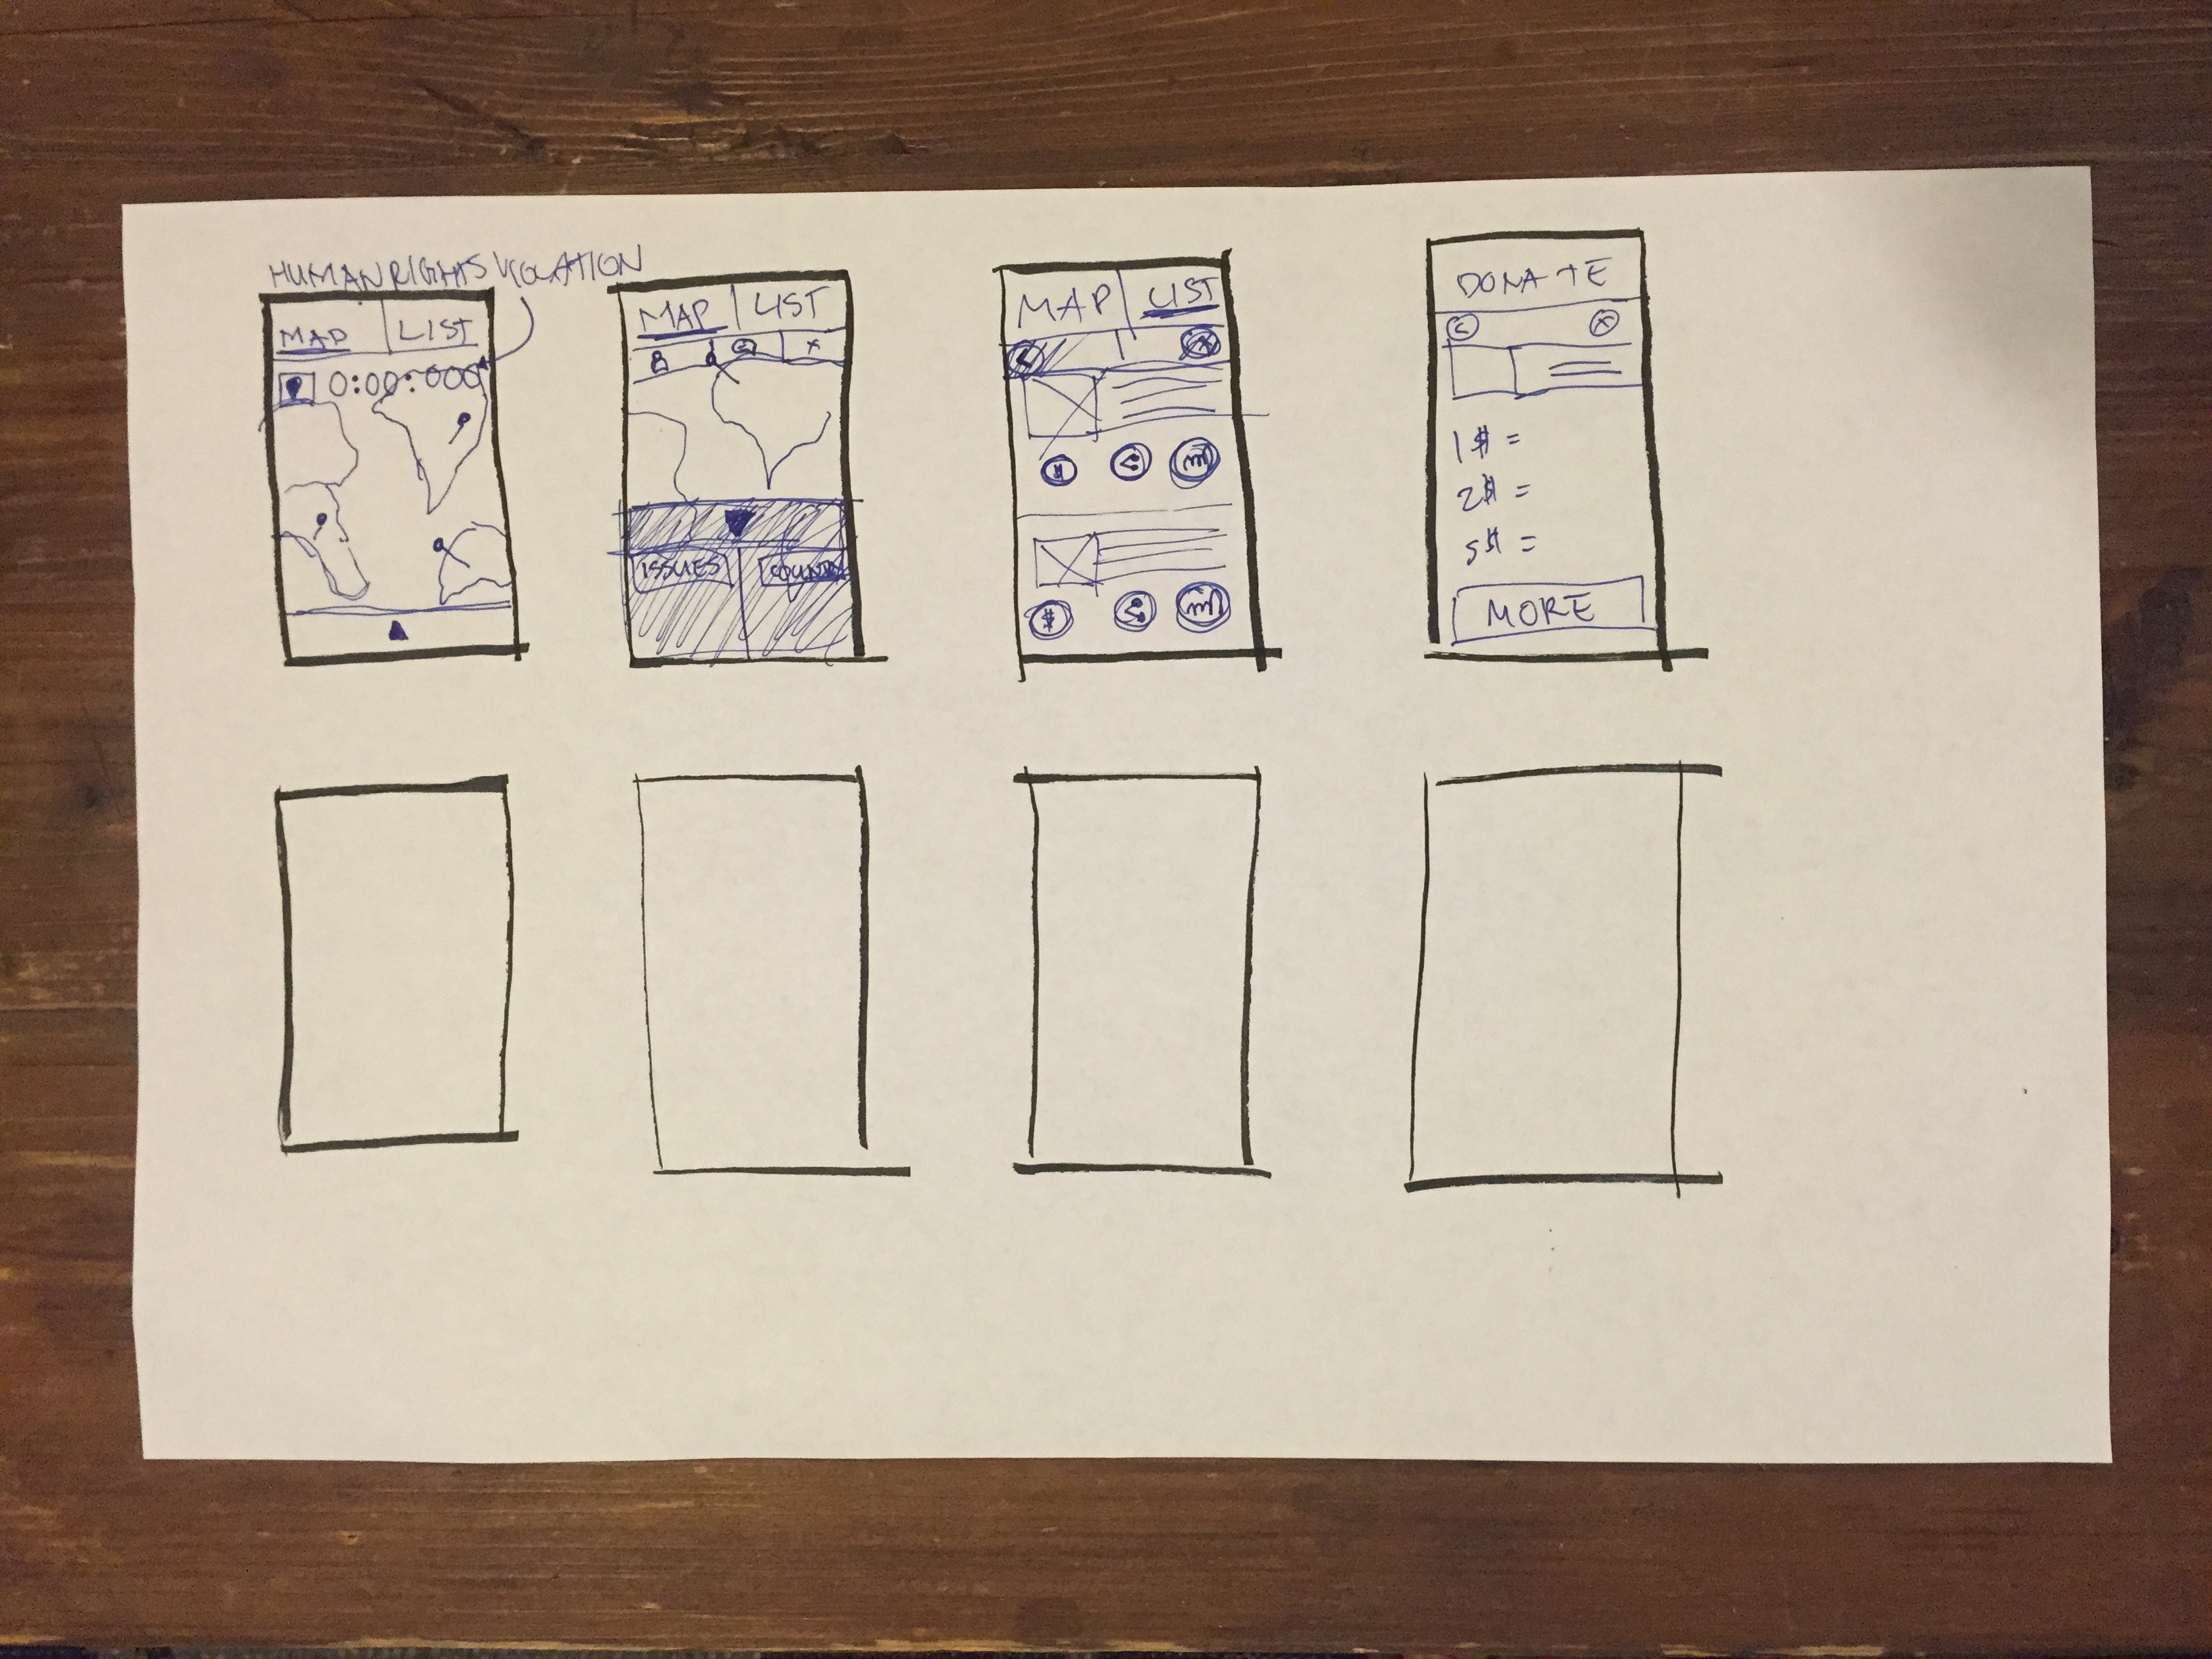 HUMAN RIGHTS VIOLATION
MAP LIST
0:00:000
MAP LIST
X
ISSUES
MAP LIST
$
DONATE
< X
1$ =
2$ =
5$ =
MORE